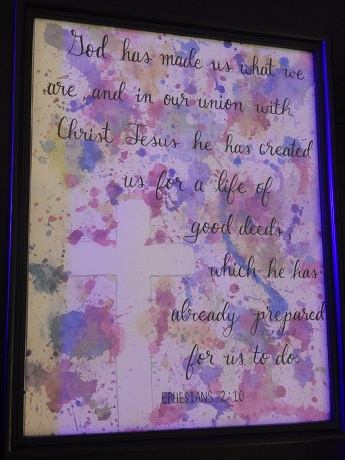 God has made us what we
are, and in our union with
Christ Jesus he has created
us for a life of
good deeds,
which he has
already prepared
for us to do.
EPHESIANS 2:10